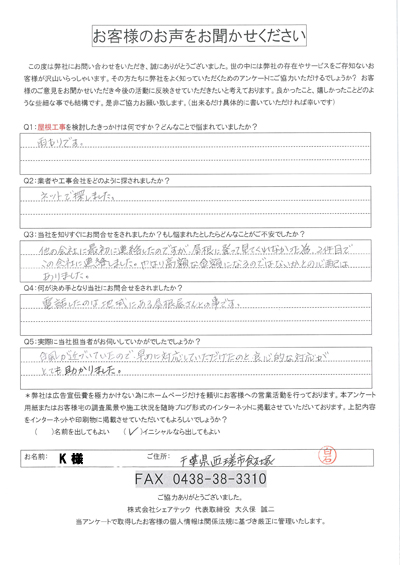 お客様のお声をお聞かせください
この度は弊社にお問い合わせをいただき、誠にありがとうございました。世の中には弊社の存在やサービスをご存知ないお
客様が沢山いらっしゃいます。その方たちに弊社をよく知っていただくためのアンケートにご協力いただけるでしょうか？ お客
様のご意見をお聞かせいただき今後の活動に反映させていただきたいと考えております。良かったこと、嬉しかったことどのよ
うな些細な事でも結構です。是非ご協力お願い致します。（出来るだけ具体的に書いていただければ幸いです）
Q1：屋根工事を検討したきっかけは何ですか？どんなことで悩まれていましたか？
雨もりです。
Q2：業者や工事会社をどのように探されましたか？
ネットで探しました。
Q3：当社を知りすぐにお問合せをされましたか？もし悩まれたとしたらどんなことがご不安でしたか？
他の会社に最初に連絡したのですが、屋根に登って見てくれなかった為、2件目で
この会社に連絡しました。やはり高額な金額になるのではないかとの心配は
ありました。
Q4：何が決め手となり当社にお問合せをされましたか？
電話したのは地域にある屋根屋さんとの事です。
Q5：実際に当社担当者がお伺いしていかがでしたでしょうか？
台風が近づいていたので早めに対応していただけたのと良心的な対応が
とても助かりました。
＊弊社は広告宣伝費を極力かけない為にホームページだけを頼りにお客様への営業活動を行っております。本アンケート
用紙またはお客様宅の調査風景や施工状況を随時ブログ形式のインターネットに掲載させていただいております。上記内容
をインターネットや印刷物に掲載させていただいてもよろしいでしょうか？
（　）名前を出してもよい （✓）イニシャルなら出してもよい
お名前： K 様 ご住所： 千葉県匝瑳市飯塚
白石
FAX 0438-38-3310
ご協力ありがとうございました。
株式会社シェアテック 代表取締役 大久保 誠二
当アンケートで取得したお客様の個人情報は関係法規に基づき厳正に管理いたします。